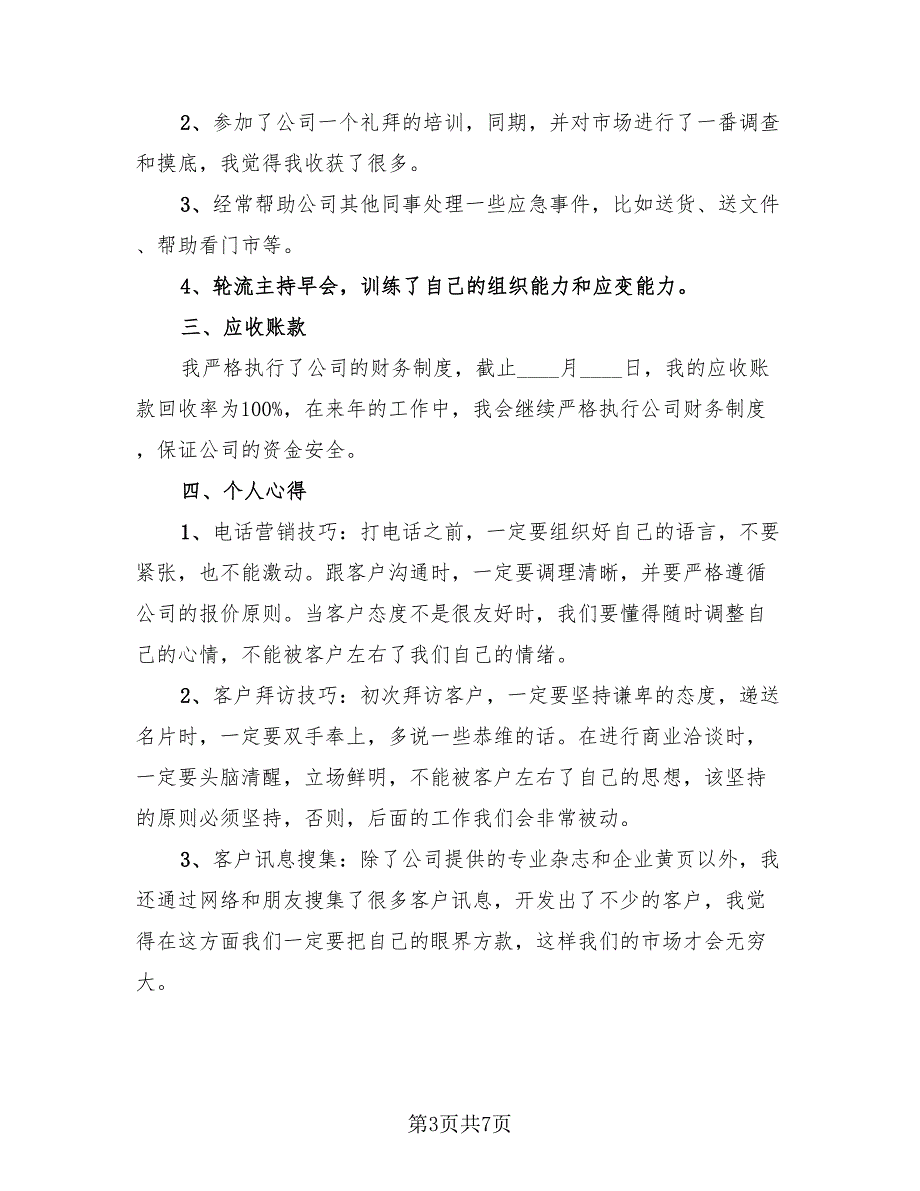 2、参加了公司一个礼拜的培训，同期，并对市场进行了一番调查
和摸底，我觉得我收获了很多。
3、经常帮助公司其他同事处理一些应急事件，比如送货、送文件
、帮助看门市等。
4、轮流主持早会，训练了自己的组织能力和应变能力。
三、应收账款
我严格执行了公司的财务制度，截止____月____日，我的应收账
款回收率为100%，在来年的工作中，我会继续严格执行公司财务制度
，保证公司的资金安全。
四、个人心得
1、电话营销技巧：打电话之前，一定要组织好自己的语言，不要
紧张，也不能激动。跟客户沟通时，一定要调理清晰，并要严格遵循
公司的报价原则。当客户态度不是很友好时，我们要懂得随时调整自
己的心情，不能被客户左右了我们自己的情绪。
2、客户拜访技巧：初次拜访客户，一定要坚持谦卑的态度，递送
名片时，一定要双手奉上，多说一些恭维的话。在进行商业洽谈时，
一定要头脑清醒，立场鲜明，不能被客户左右了自己的思想，该坚持
的原则必须坚持，否则，后面的工作我们会非常被动。
3、客户讯息搜集：除了公司提供的专业杂志和企业黄页以外，我
还通过网络和朋友搜集了很多客户讯息，开发出了不少的客户，我觉
得在这方面我们一定要把自己的眼界方款，这样我们的市场才会无穷
大。
第3页共7页